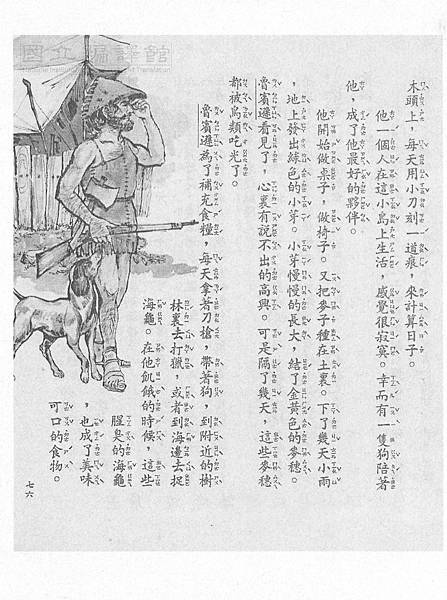 國立編譯館
木頭上，每天用小刀刻一道痕，來計算日子。
他一個人在這小島上生活，感覺很寂寞。幸而有一隻狗陪著
他，成了他最好的夥伴。
他開始做桌子，做椅子。又把麥子種在土裏。下了幾天小雨
，地上發出綠色的小芽。小芽慢慢的長大，結了金黃色的麥穗。
魯賓遜看見了，心裏有說不出的高興。可是隔了幾天，這些麥穗
都被鳥類吃光了。
魯賓遜為了補充食糧，每天拿著刀槍，帶著狗，到附近的樹
林裏去打獵，或者到海邊去捉
海龜。在他飢餓的時候，這些
腥臭的海龜
，也成了美味
可口的食物。
七六